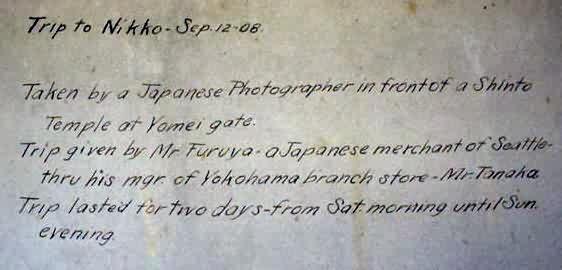 Trip to Nikko - Sep. 12 - 08.
Taken by a Japanese Photographer in front of a Shinto
Temple at Yomei gate.
Trip given by Mr. Furuya - a Japanese merchant of Seattle -
thru his mgr. of Yokohama branch store - Mr. Tanaka
Trip lasted for two days - from Sat. morning until Sun.
evening.